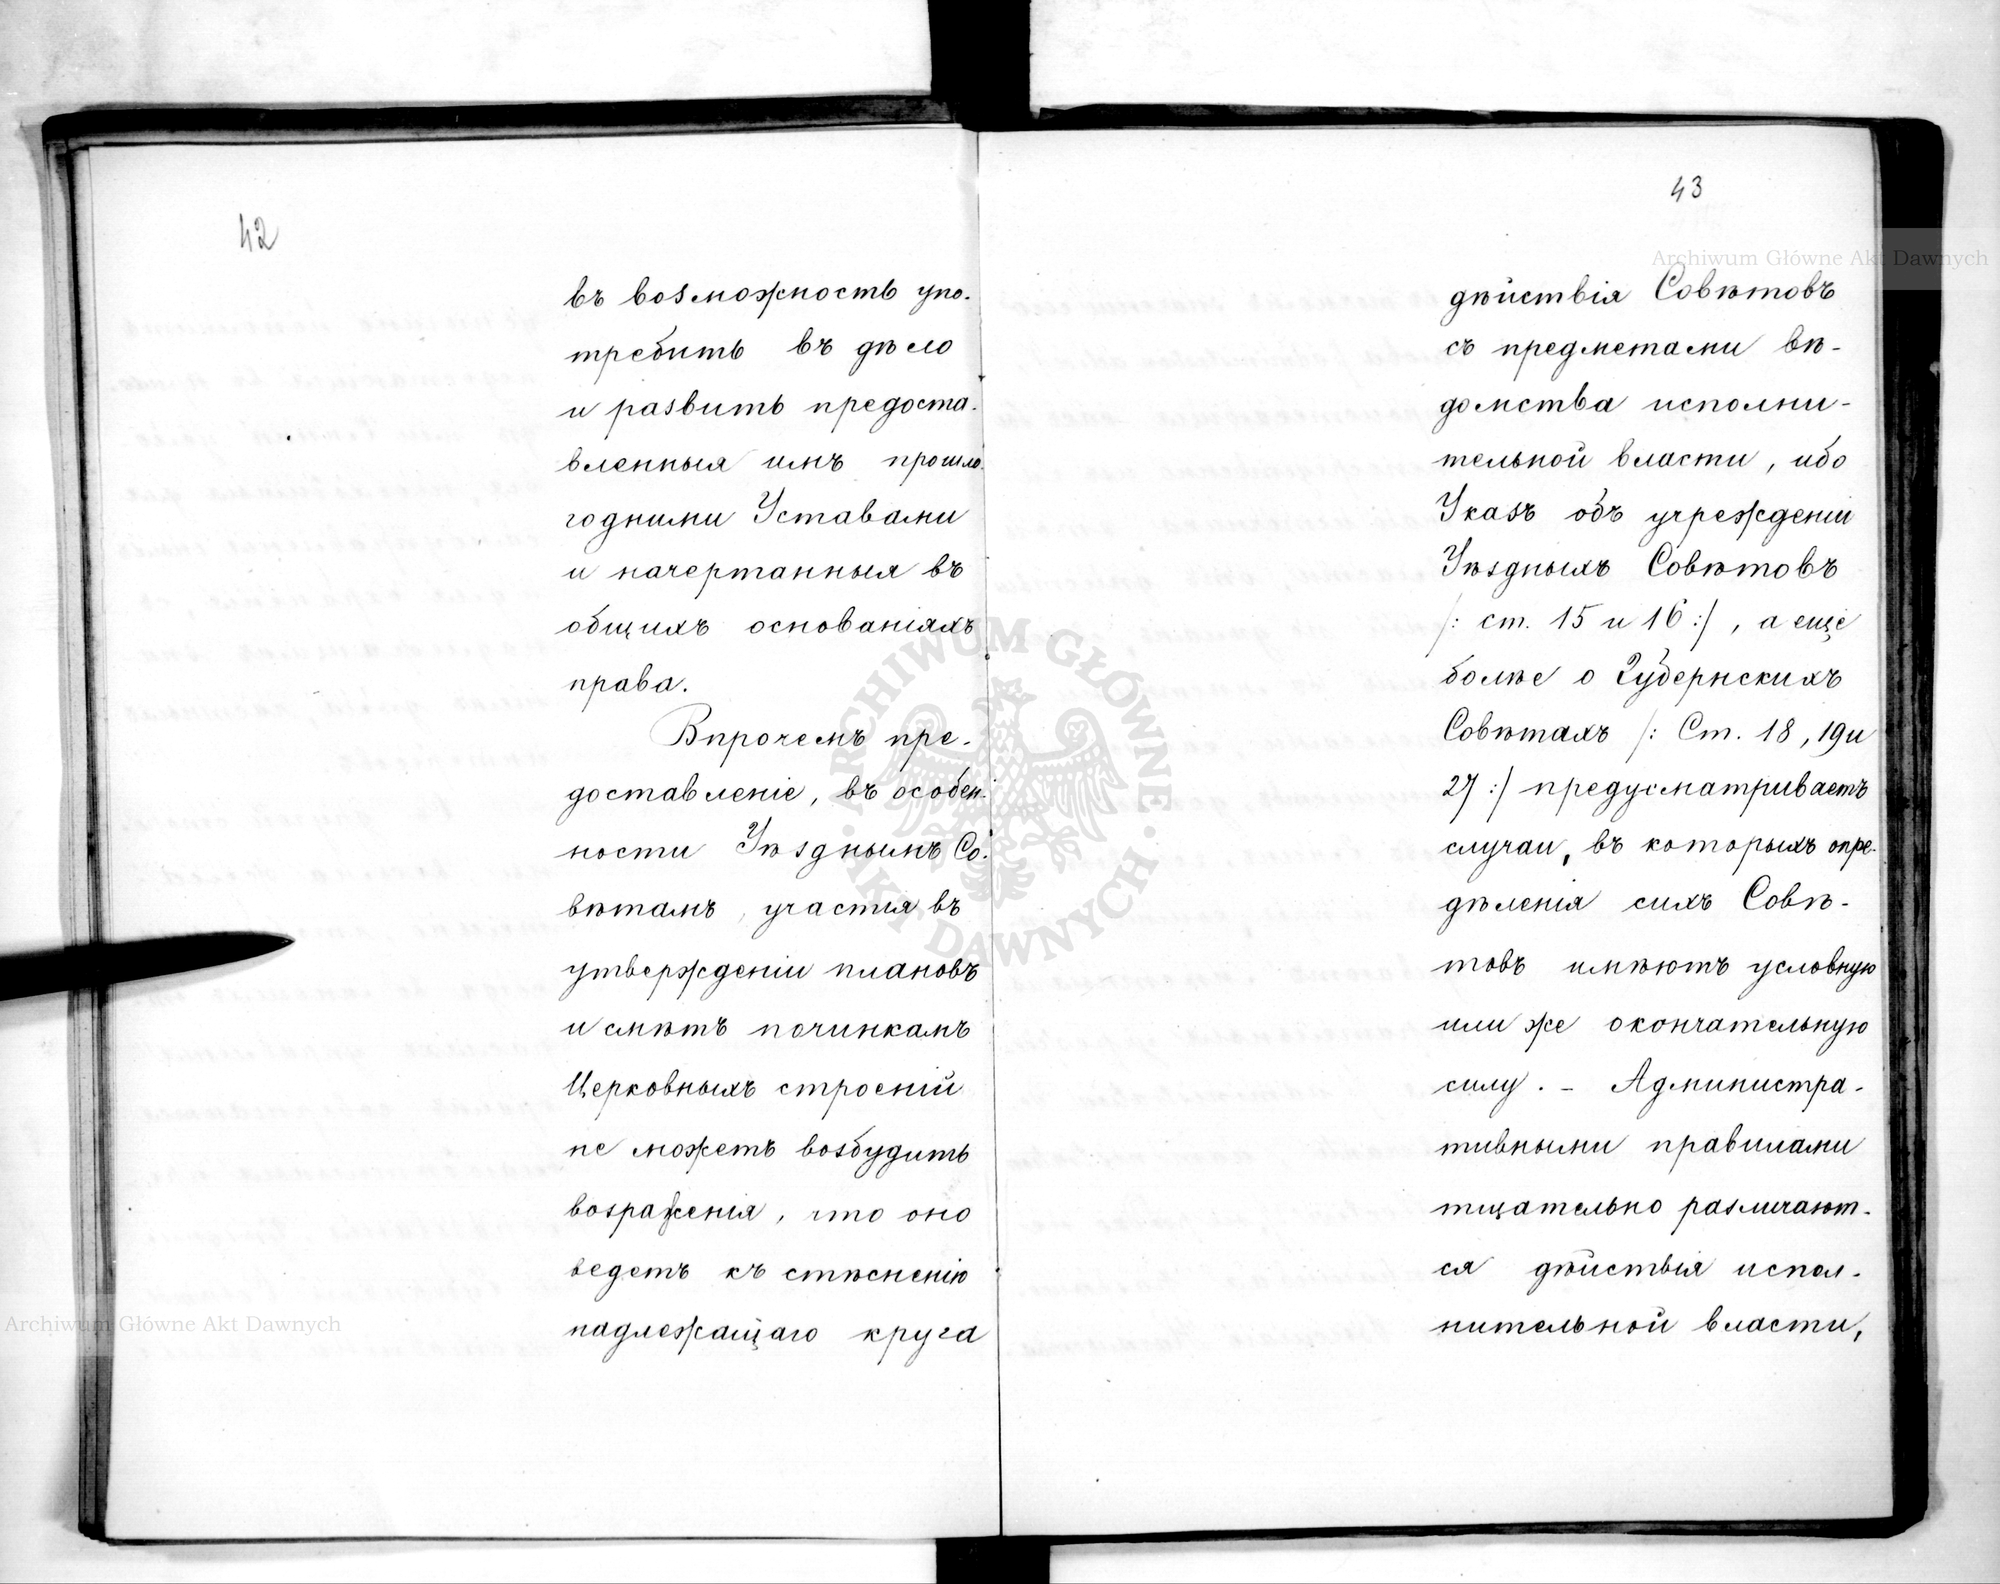 42
въ возможность упо-
требить въ дѣло
и развить предоста-
вленныя имъ прошло-
годними Уставами
и начертанныя въ
общихъ основаніяхъ
права.
Впрочемъ пре-
доставленіе, въ особен-
ности Уѣзднымъ Со-
вѣтамъ, участія въ
утвержденіи плановъ
и смѣтъ починкамъ
Церковныхъ строеній
не можетъ возбудить
возраженія, что оно
ведетъ къ стѣсненію
надлежащаго круга
43
дѣйствія Совѣтовъ
съ предметами вѣ-
домства исполни-
тельной власти, ибо
Указъ объ учрежденіи
Уѣздныхъ Совѣтовъ
/: ст. 15 и 16 :/, а еще
болѣе о Губернскихъ
Совѣтахъ /: Ст. 18, 19 и
27 :/ предусматриваетъ
случаи, въ которыхъ опре-
дѣленія сихъ Совѣ-
товъ имѣютъ условную
или же окончательную
силу. - Администра-
тивными правилами
тщательно различают-
ся дѣйствія испол-
нительной власти,
Archiwum Główne Akt Dawnych
Archiwum Główne Akt Dawnych
ARCHIWUM GŁÓWNE · AKT DAWNYCH ·